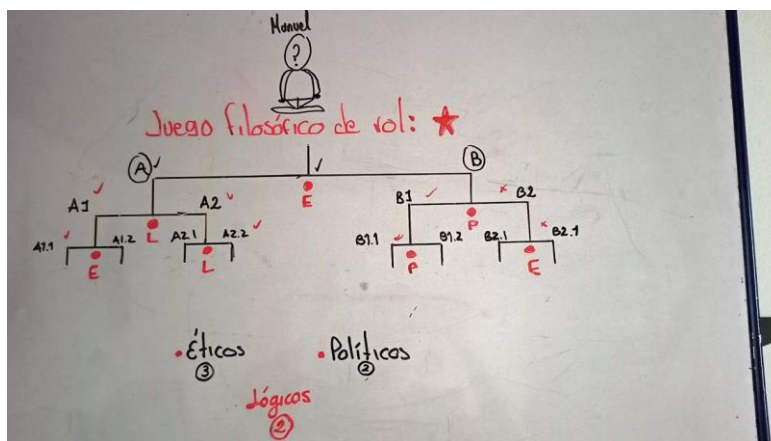 Manuel
?
Juego filosófico de rol:
A B
E
A1 A2 B1 B2
L P
A1.1 A1.2 A2.1 A2.2 B1.1 B1.2 B2.1 B2.1
E L P E
• Éticos • Políticos
3 2
Lógicos
2